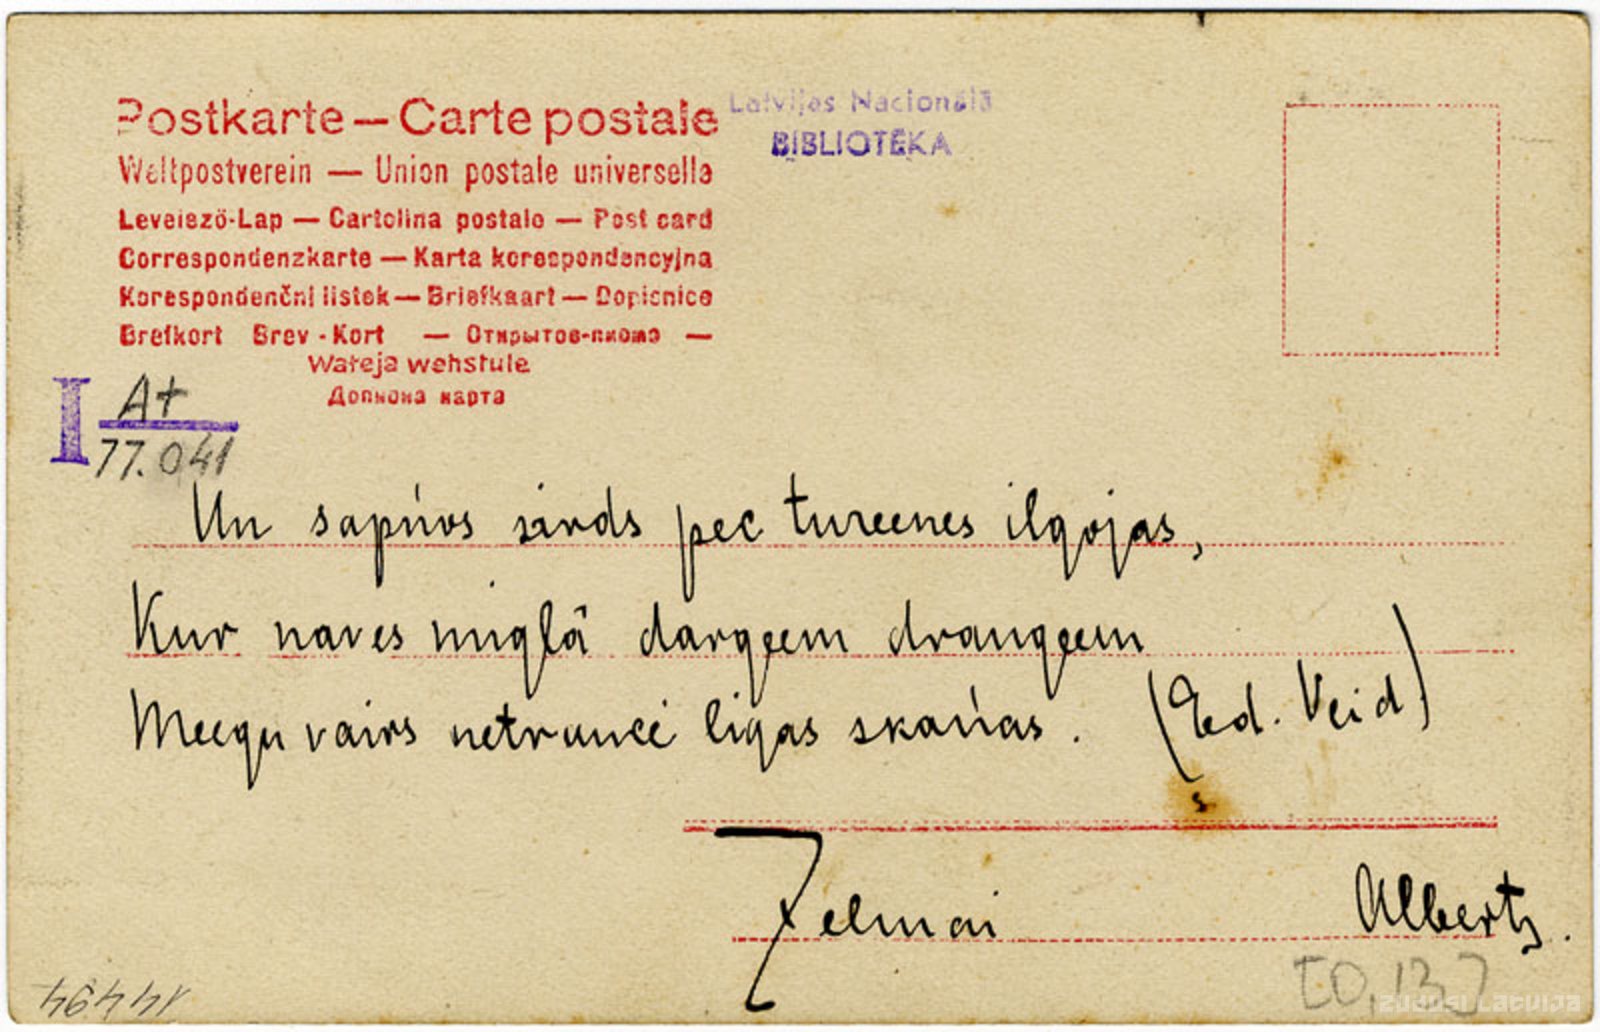 Postkarte — Carte postale
Weltpostverein — Union postale universelle
Levelező-Lap — Cartolina postale — Post card
Correspondenzkarte — Karta korespondencyjna
Korespondenční listek — Briefkaart — Dopisnice
Brefkort Brev-Kort — Открытое-письмо —
Wateja wehstule
Дописна карта
Latvijas Nacionālā
BIBLIOTĒKA
I A+
77.041
Un sapņos sirds pec tureenes ilgojas,
Kur naves miglā dargeem draugeem
Meegu vairs netraucé ligas skaņas. (Ed. Veid)
Zelmai Alberts.
[0,13]
14494
ZUDUSI LATVIJA